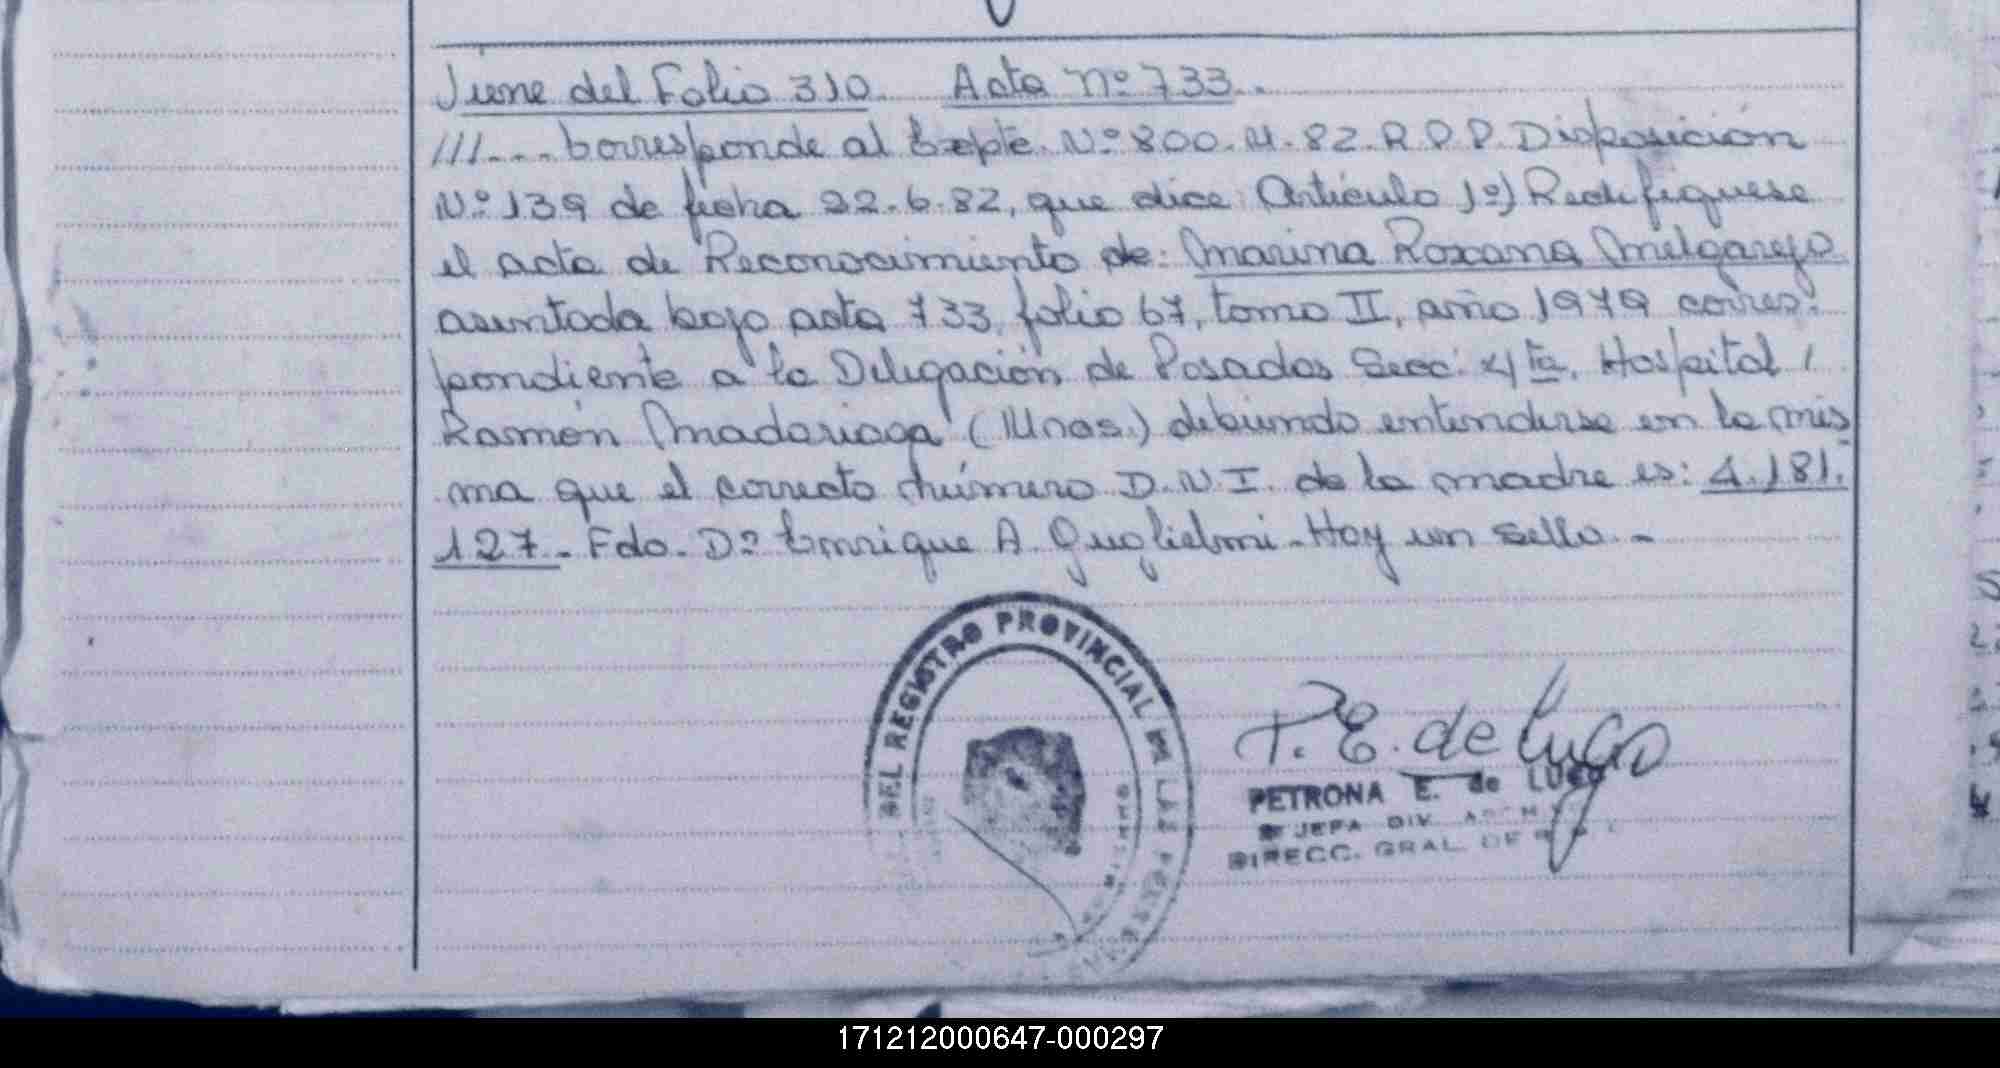 Viene del Folio 310. Acta Nº 733.
///... Corresponde al Expte. Nº 800. M. 82. R.P.P. Disposición
Nº 139 de fecha 22.6.82, que dice: Artículo 1º) Rectifiquese
el acta de Reconocimiento de: Marina Roxana Melgarejo
asentada bajo acta 733, folio 67, tomo II, año 1979 corres-
pondiente a la Delegación de Posadas Secc: 4ta. Hospital
Ramón Madariaga (Mnes.) debiendo entenderse en la mis
ma que el correcto número D.N.I. de la madre es: 4.181.
127. Fdo. Dº Enrique A. Guglielmi. Hay un sello.-
DEL REGISTRO PROVINCIAL DE LAS PERSONAS
P. E. de Lugo
PETRONA E. de LUGO
JEFA DIV.
DIRECC. GRAL. DE
171212000647-000297